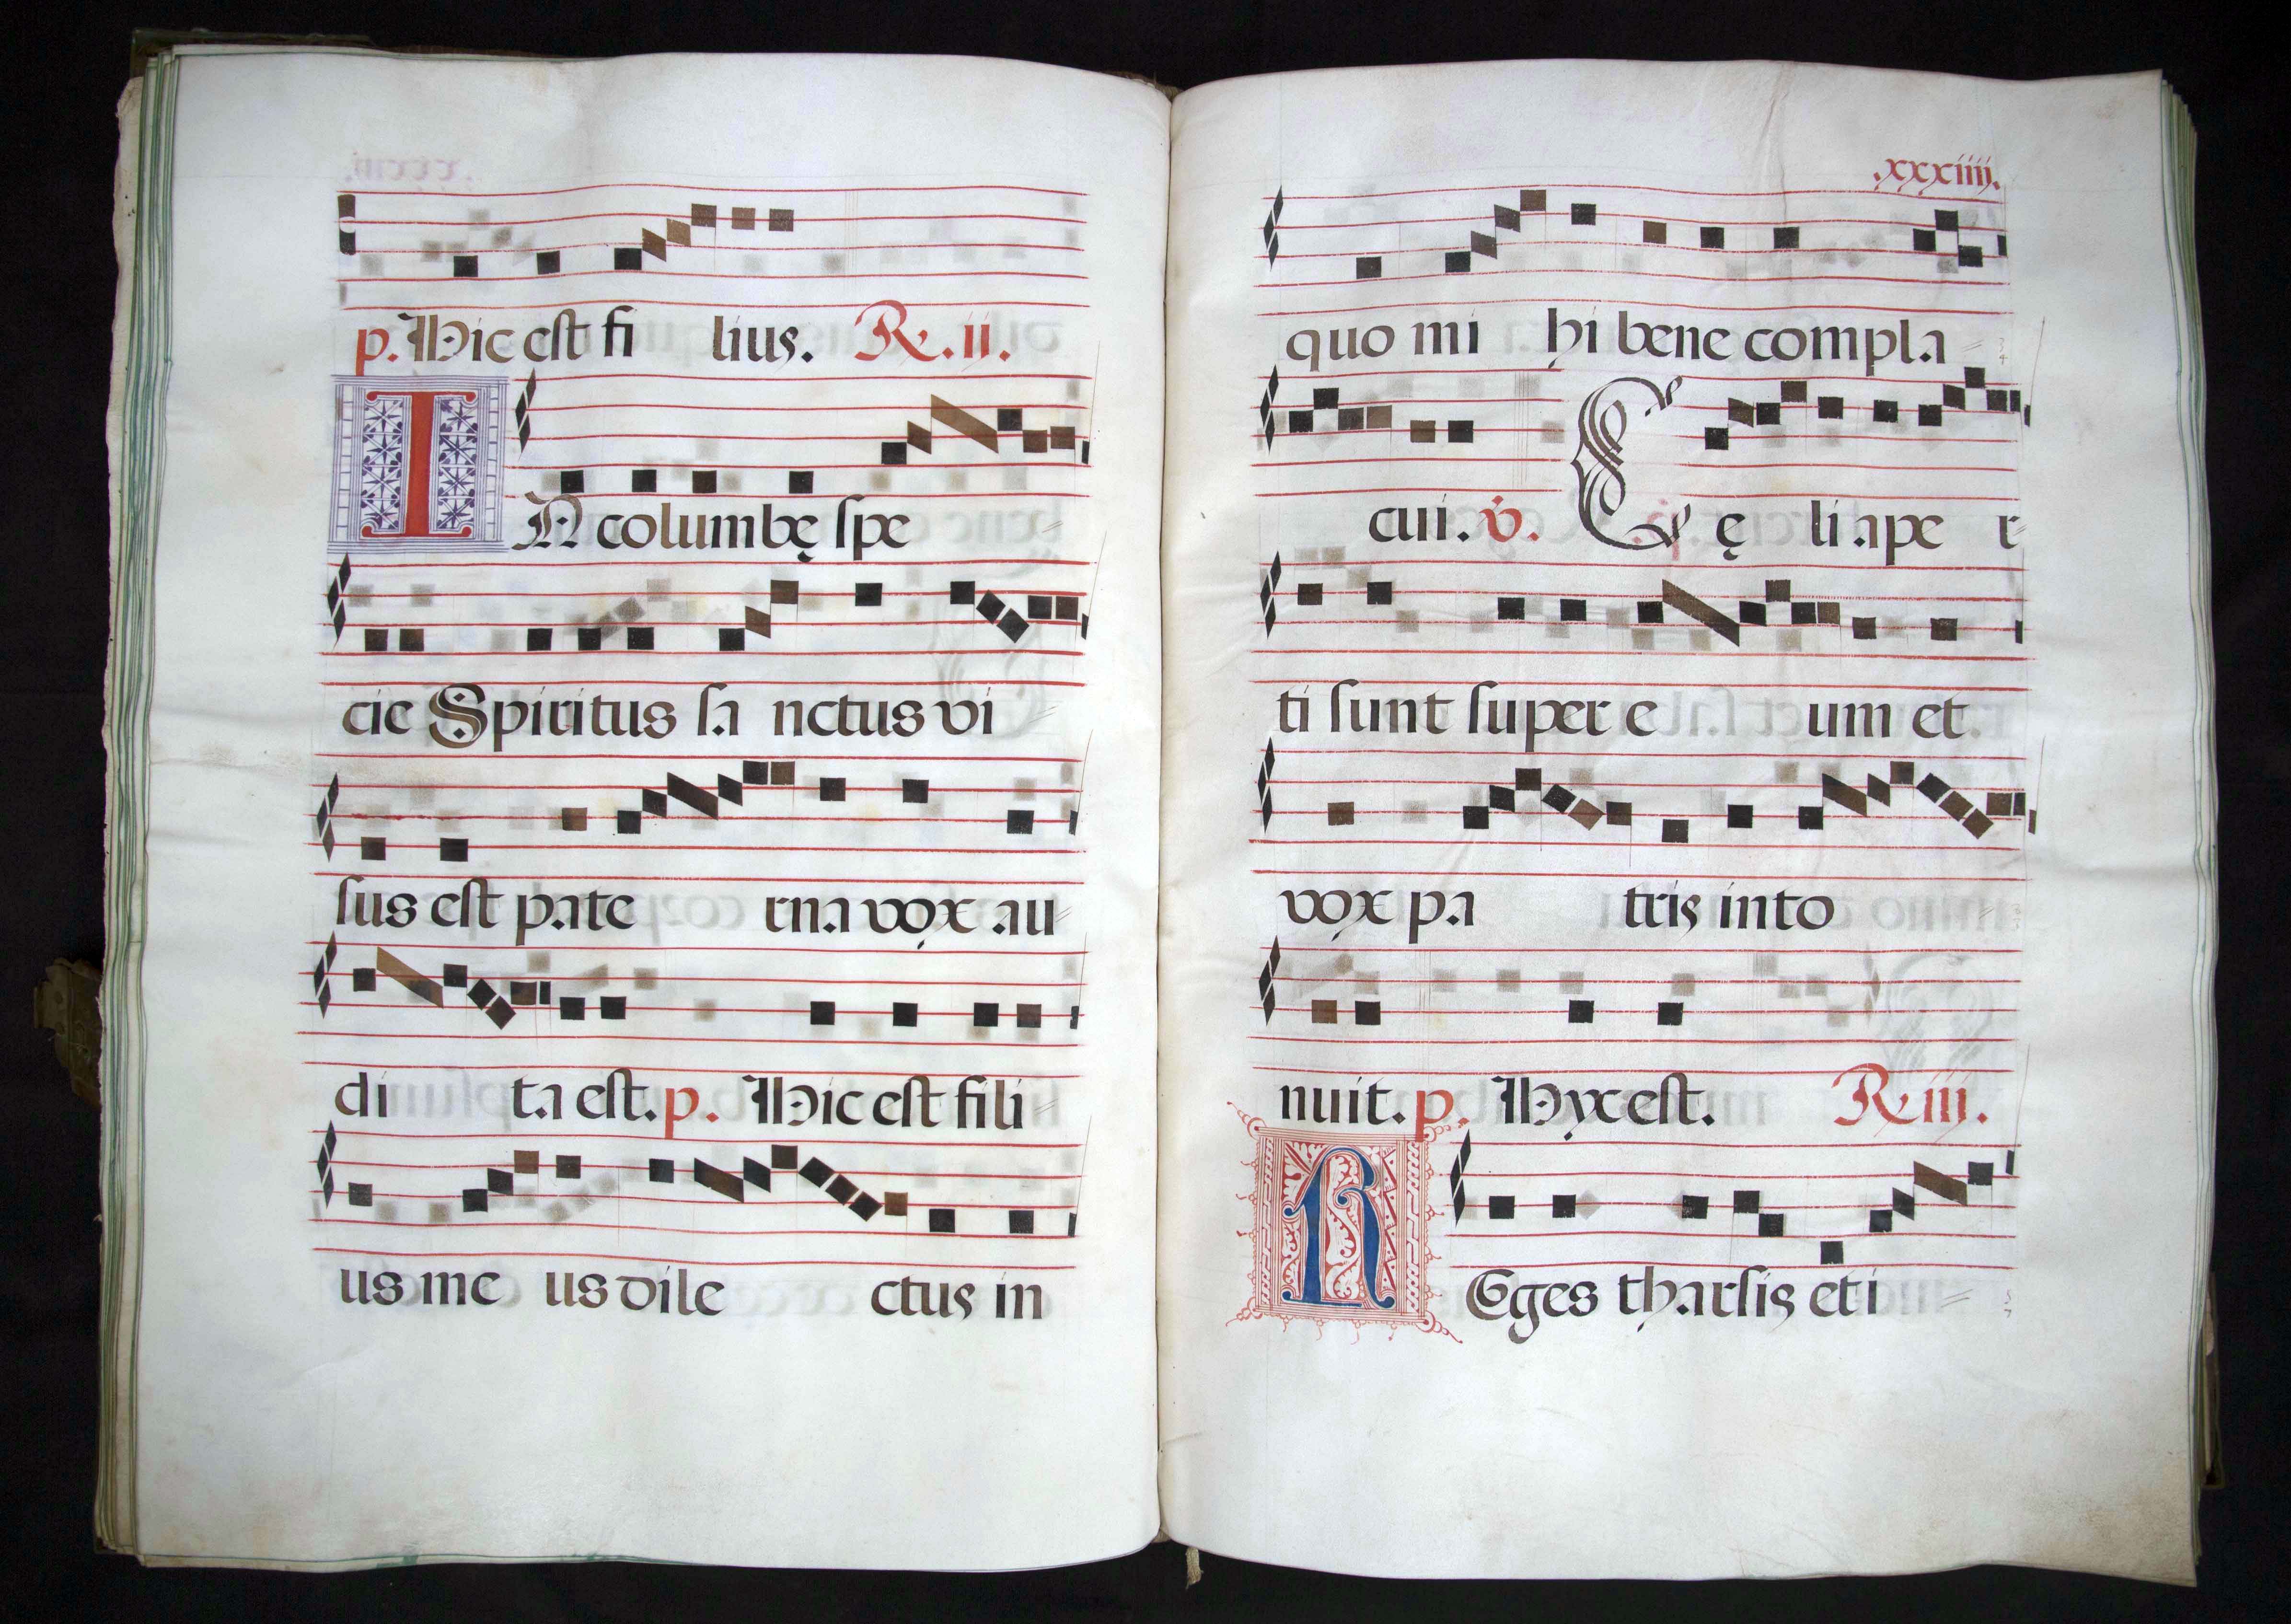 p. Hic est fi lius. R. ii.
IN columbę spe
cie Spiritus sa nctus vi
sus est pate rna vox au
di ta est. p. Hic est fili
us me us dile ctus in
.xxxiiij.
quo mi hi bene compla
cui. v. Cę li ape r
ti sunt super e um et
vox pa tris into
nuit. p. Hyc est. R iij.
REges tharsis et i